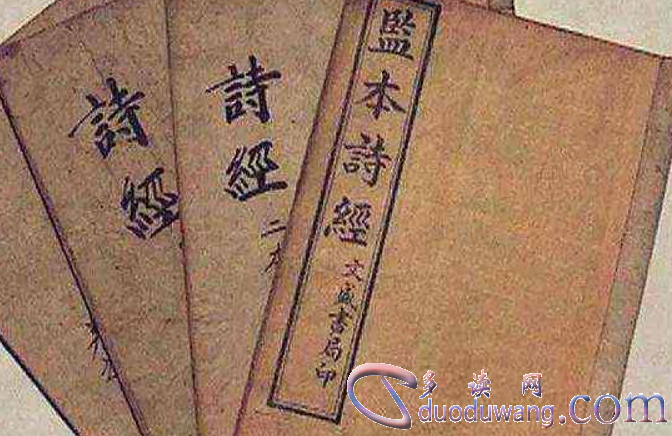 詩經
詩經
二本
監本詩經 文盛書局印
多读网
duoduwang.com